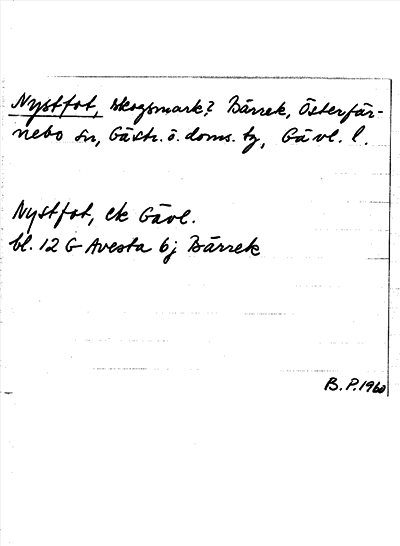 Nystfot, skogsmark? Bärrek, Österfär-
nebo sn, Gästr. ö. doms. tg, Gävl. l.
Nystfot, ek Gävl.
bl. 12 G Avesta 6j Bärrek
B.P. 1960